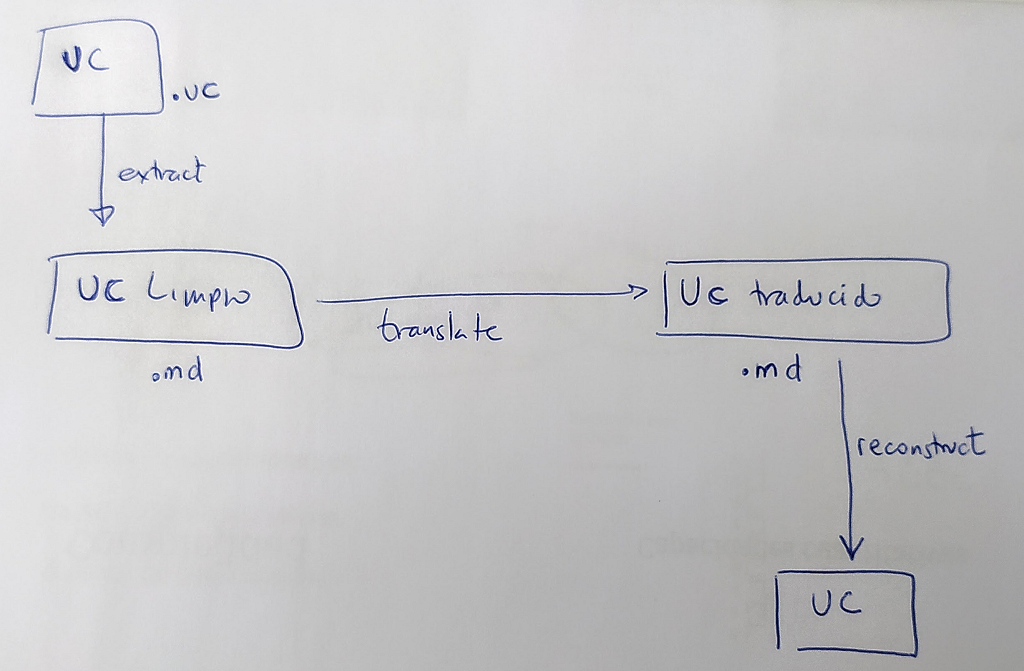 UC
.uc
extract
UC Limpio
.md
translate
UC traducido
.md
reconstruct
UC